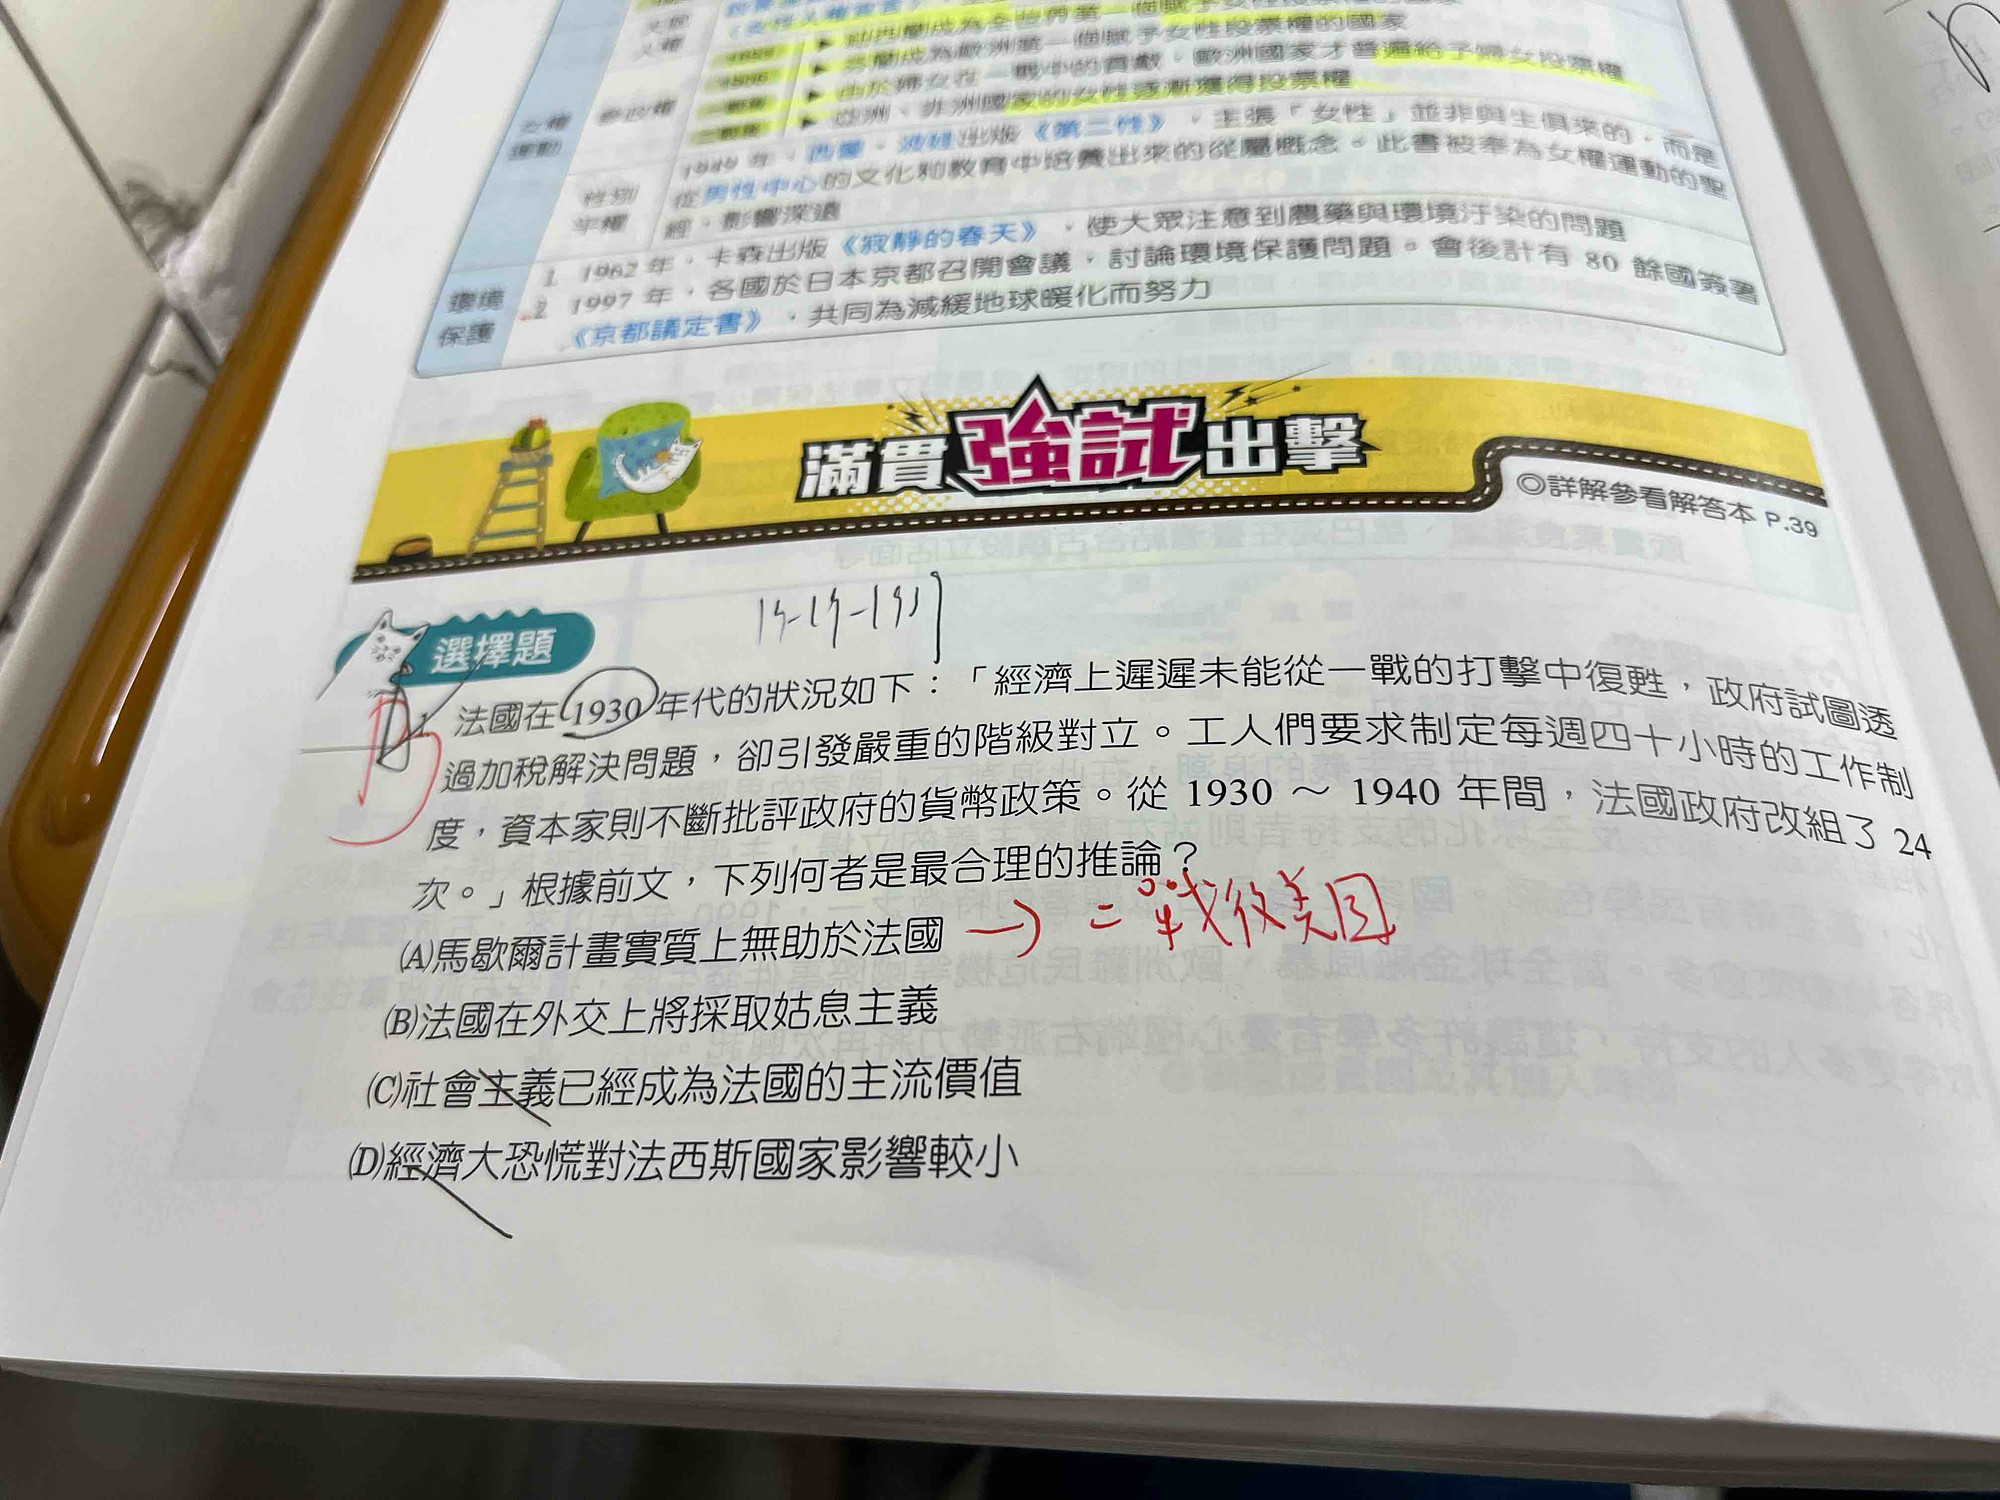 芬蘭成為歐洲第一個賦予女性投票權的國家
由於婦女在一戰中的貢獻，歐洲國家才普遍給予婦女投票權
亞洲、非洲國家的女性逐漸獲得投票權
女權
運動
參政權
性別
平權
1949 年，西蒙．波娃出版《第二性》，主張「女性」並非與生俱來的，而是
從男性中心的文化和教育中培養出來的從屬概念。此書被奉為女權運動的聖
經，影響深遠
環境
保護
1. 1962 年，卡森出版《寂靜的春天》，使大眾注意到農藥與環境汙染的問題
2. 1997 年，各國於日本京都召開會議，討論環境保護問題。會後計有 80 餘國簽署
《京都議定書》，共同為減緩地球暖化而努力
滿貫強試出擊
◎詳解參看解答本 P.39
選擇題
B
1. 法國在 1930 年代的狀況如下：「經濟上遲遲未能從一戰的打擊中復甦，政府試圖透
過加稅解決問題，卻引發嚴重的階級對立。工人們要求制定每週四十小時的工作制
度，資本家則不斷批評政府的貨幣政策。從 1930 ～ 1940 年間，法國政府改組了 24
次。」根據前文，下列何者是最合理的推論？
(A)馬歇爾計畫實質上無助於法國 → 二戰後美国
(B)法國在外交上將採取姑息主義
(C)社會主義已經成為法國的主流價值
(D)經濟大恐慌對法西斯國家影響較小